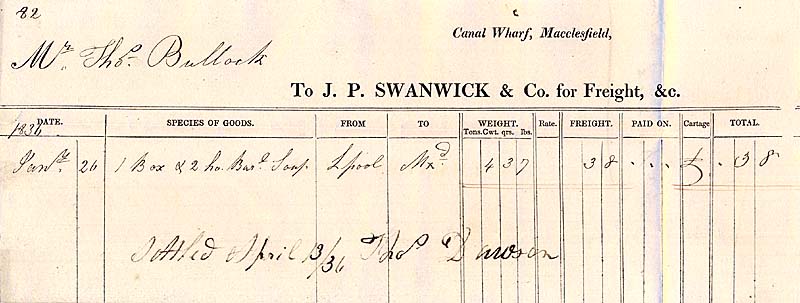 82
Canal Wharf, Macclesfield,
Mr. Thos. Bullock
To J. P. SWANWICK & Co. for Freight, &c.
DATE. SPECIES OF GOODS. FROM TO WEIGHT. Rate. FREIGHT. PAID ON. Cartage TOTAL.
1836 Tons. Cwt. qrs. lbs.
Jany. 26 1 Box & 2 Soap Lpool Mxd 4 3 7 3 8 . . . . 3 8
Settled April 13/36 Thos Dawson